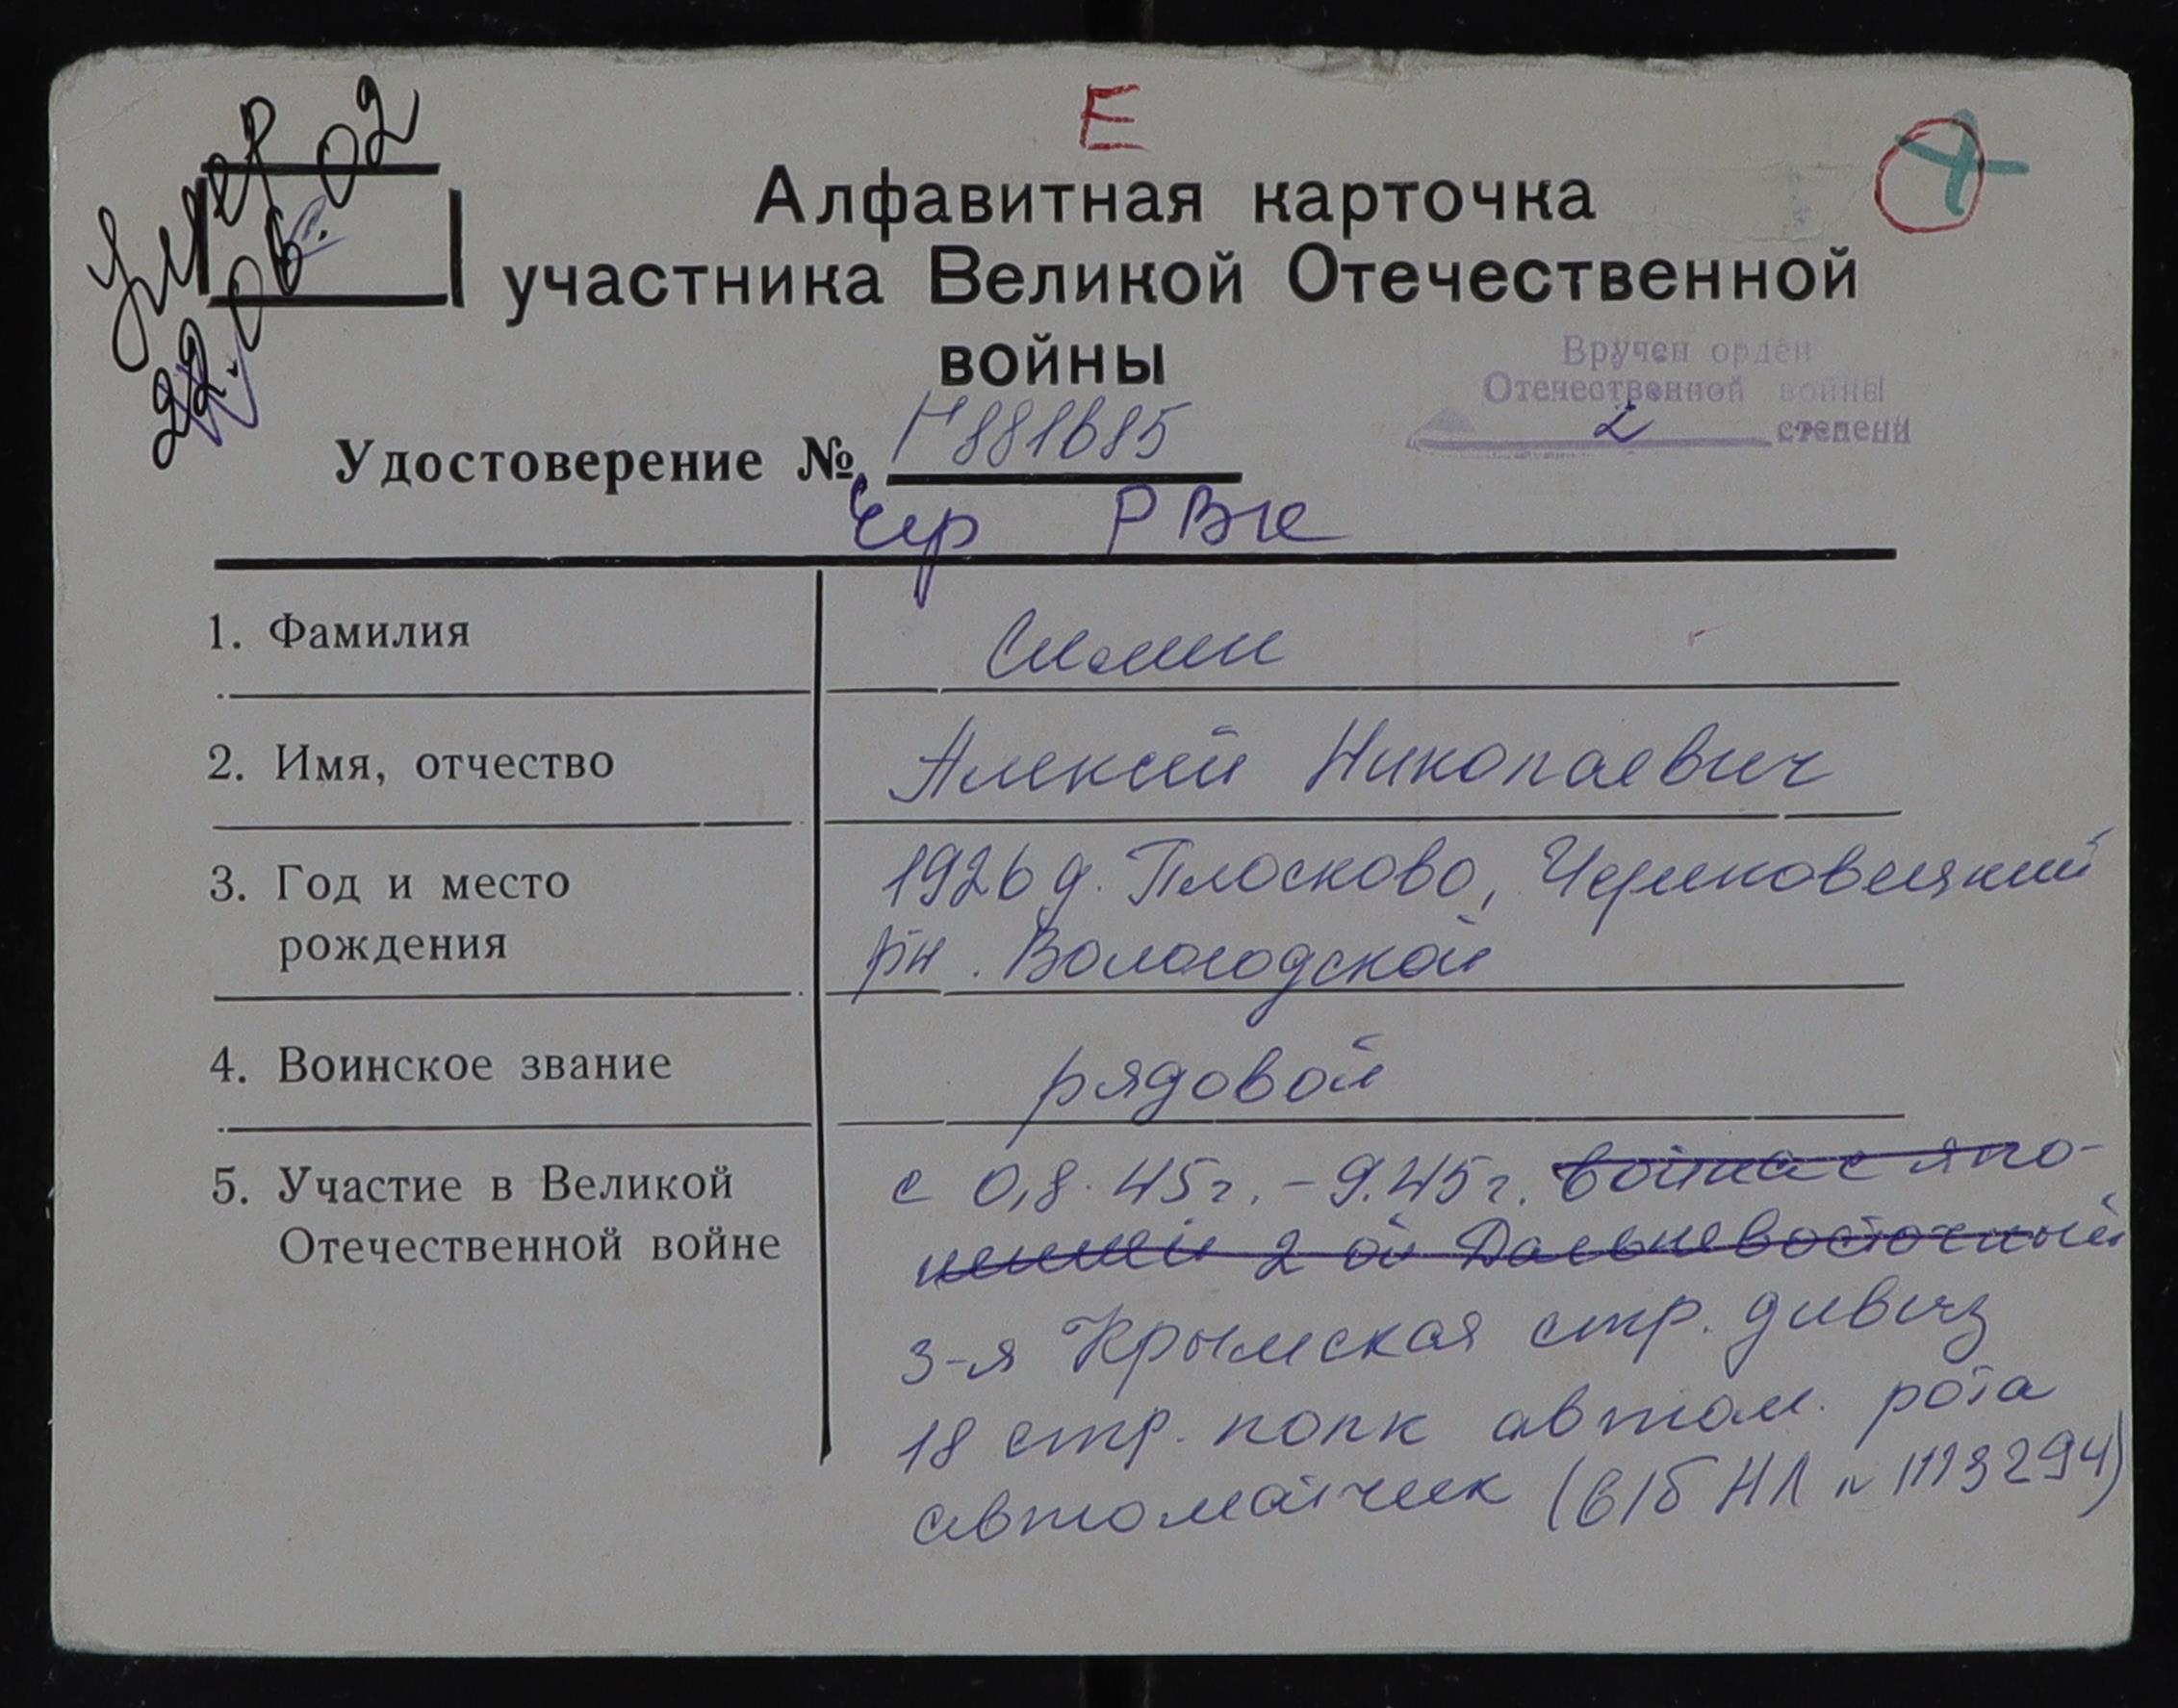 Е
Умер
22.06.02
Алфавитная карточка
участника Великой Отечественной
войны
Вручен орден
Отечественной войны
2 степени
Удостоверение № Г 881685
Чер РВК
1. Фамилия
Симин
2. Имя, отчество
Алексей Николаевич
3. Год и место
рождения
1926 д. Плосково,
рн. Вологодской
4. Воинское звание
рядовой
5. Участие в Великой
Отечественной войне
с 0,8.45г.-9.45г. война с япо-
нцией 2 ой Дальневосточный
3-я Крымская стр. дивиз
18 стр. полк автом. рота
автоматчик (в/б НЛ № 1113294)